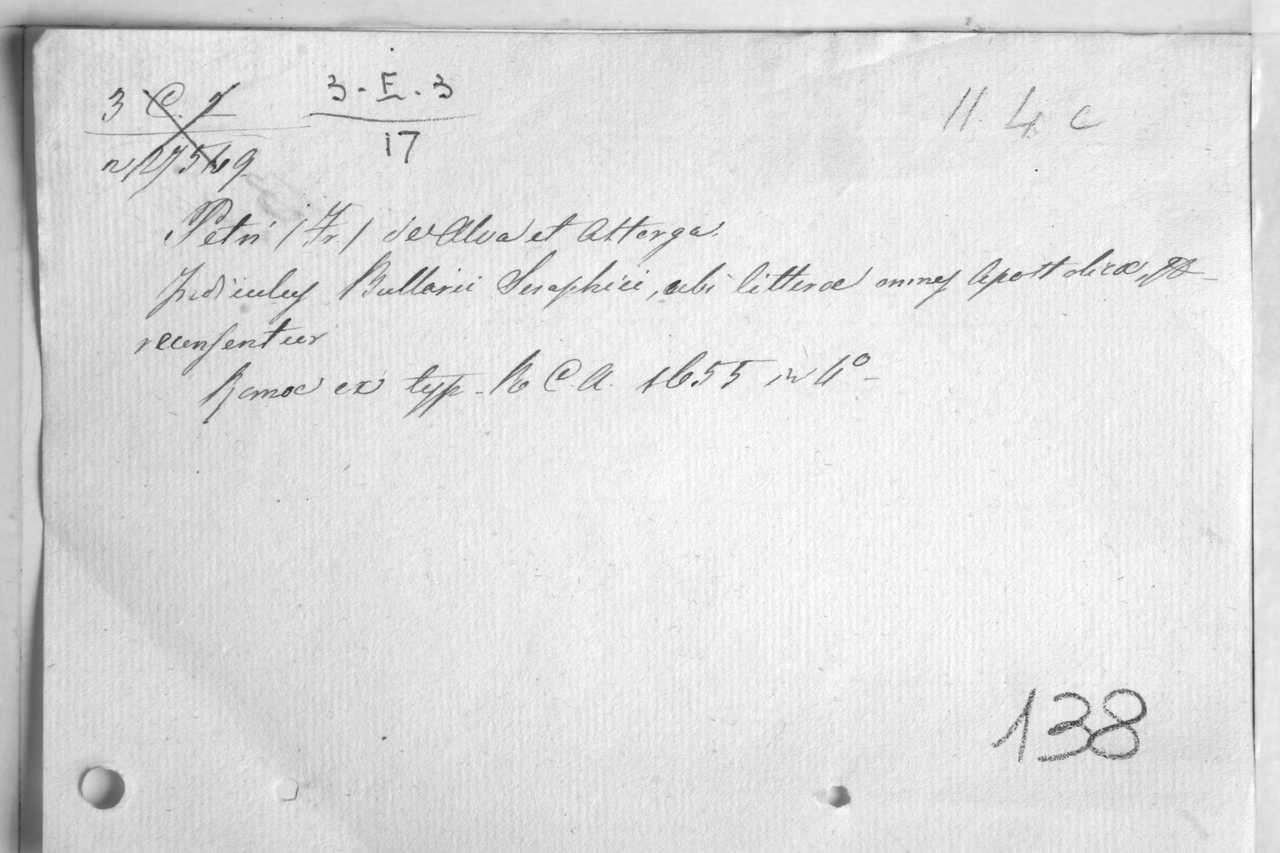 3 C. 7
3 - E. 3
11. 4 c
17
n 127549
Petri (Fr.) de Alva et Astorga.
Indiculus Bullarii Seraphici, ubi litterae omnes Apostolicae,
recensentur
Romae ex typ. R C. A. 1655 in 4°-
138